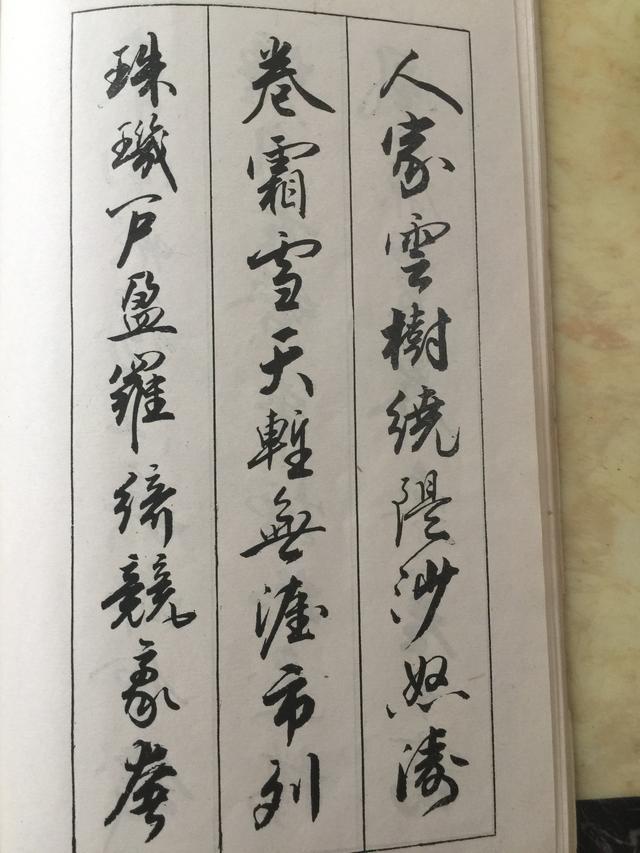 人家雲樹繞隄沙怒濤
卷霜雪天塹無涯市列
珠璣戸盈羅綺競豪奢